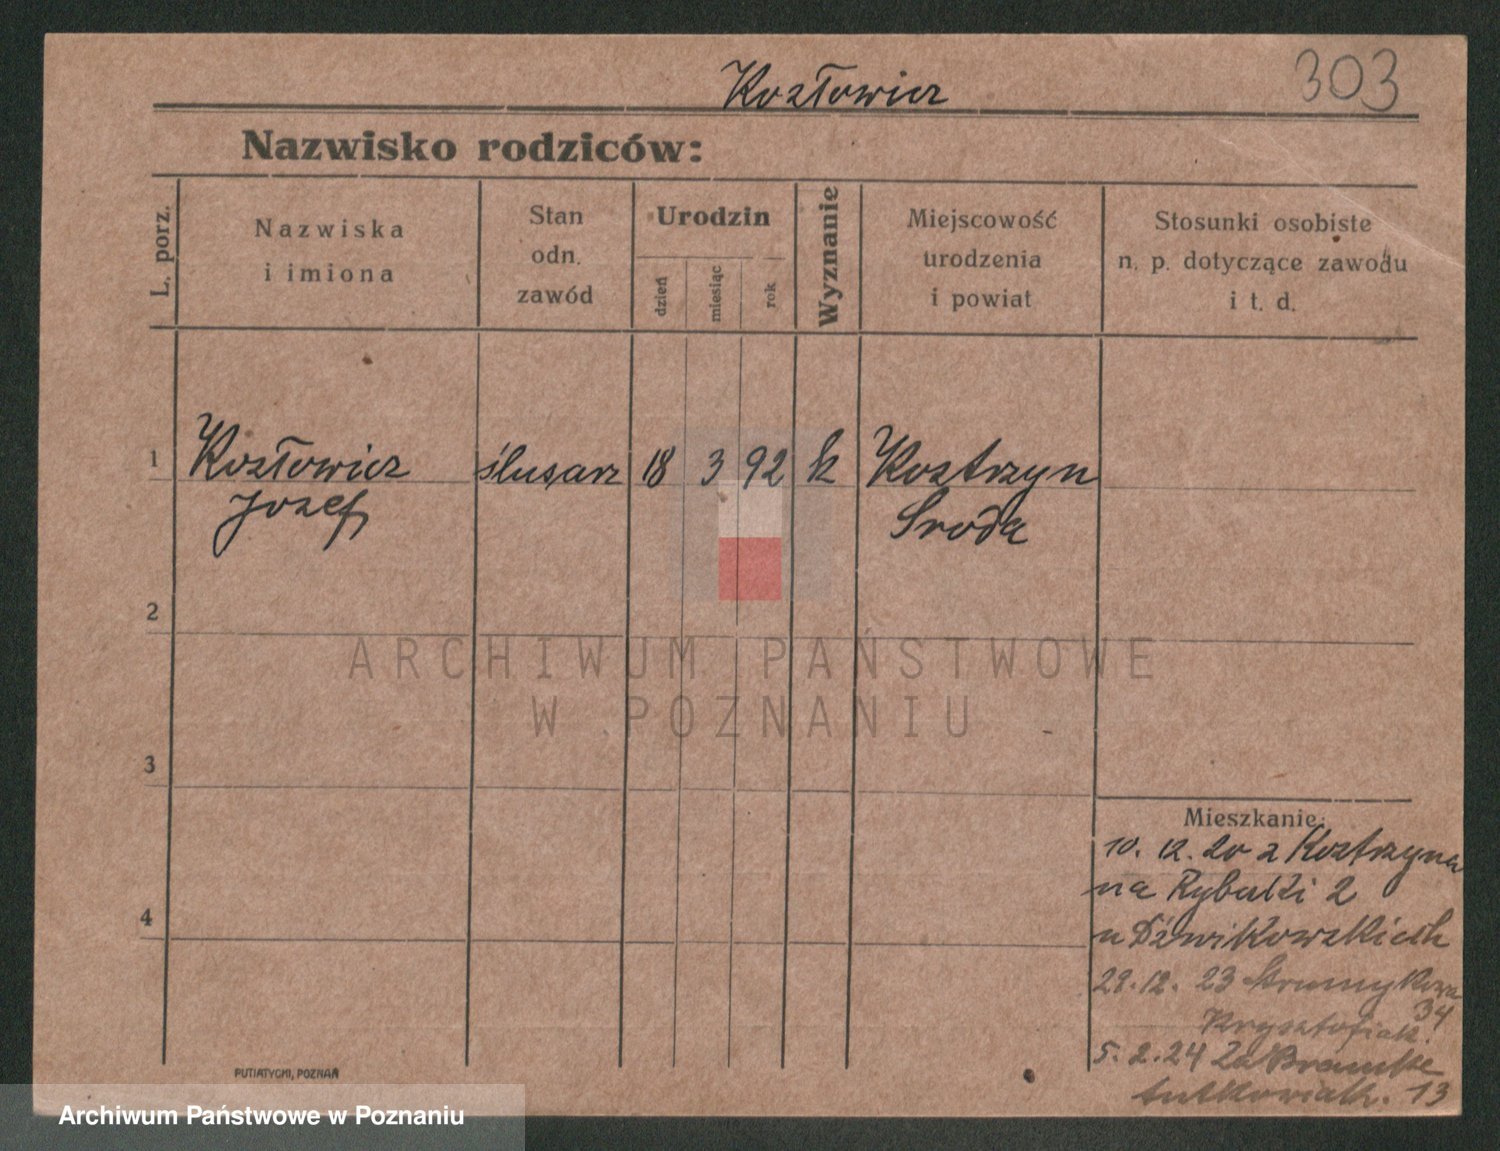 Kozłowicz
303
Nazwisko rodziców:
L. porz.
Nazwiska
i imiona
Stan
odn.
zawód
Urodzin
dzień
miesiąc
rok
Wyznanie
Miejscowość
urodzenia
i powiat
Stosunki osobiste
n. p. dotyczące zawodu
i t. d.
1
Kozłowicz
Jozef
ślusarz
18
3
92
k
Kostrzyn
Sroda
2
ARCHIWUM PAŃSTWOWE
W POZNANIU
3
4
Mieszkanie:
10. 12. 20 z Kostrzyna
na Rybaki 2
u
12. 23 Strumykowa
34
Krysztofiak.
5. 2. 24 Za Bramką
13
PUTIATYCKI, POZNAŃ
Archiwum Państwowe w Poznaniu